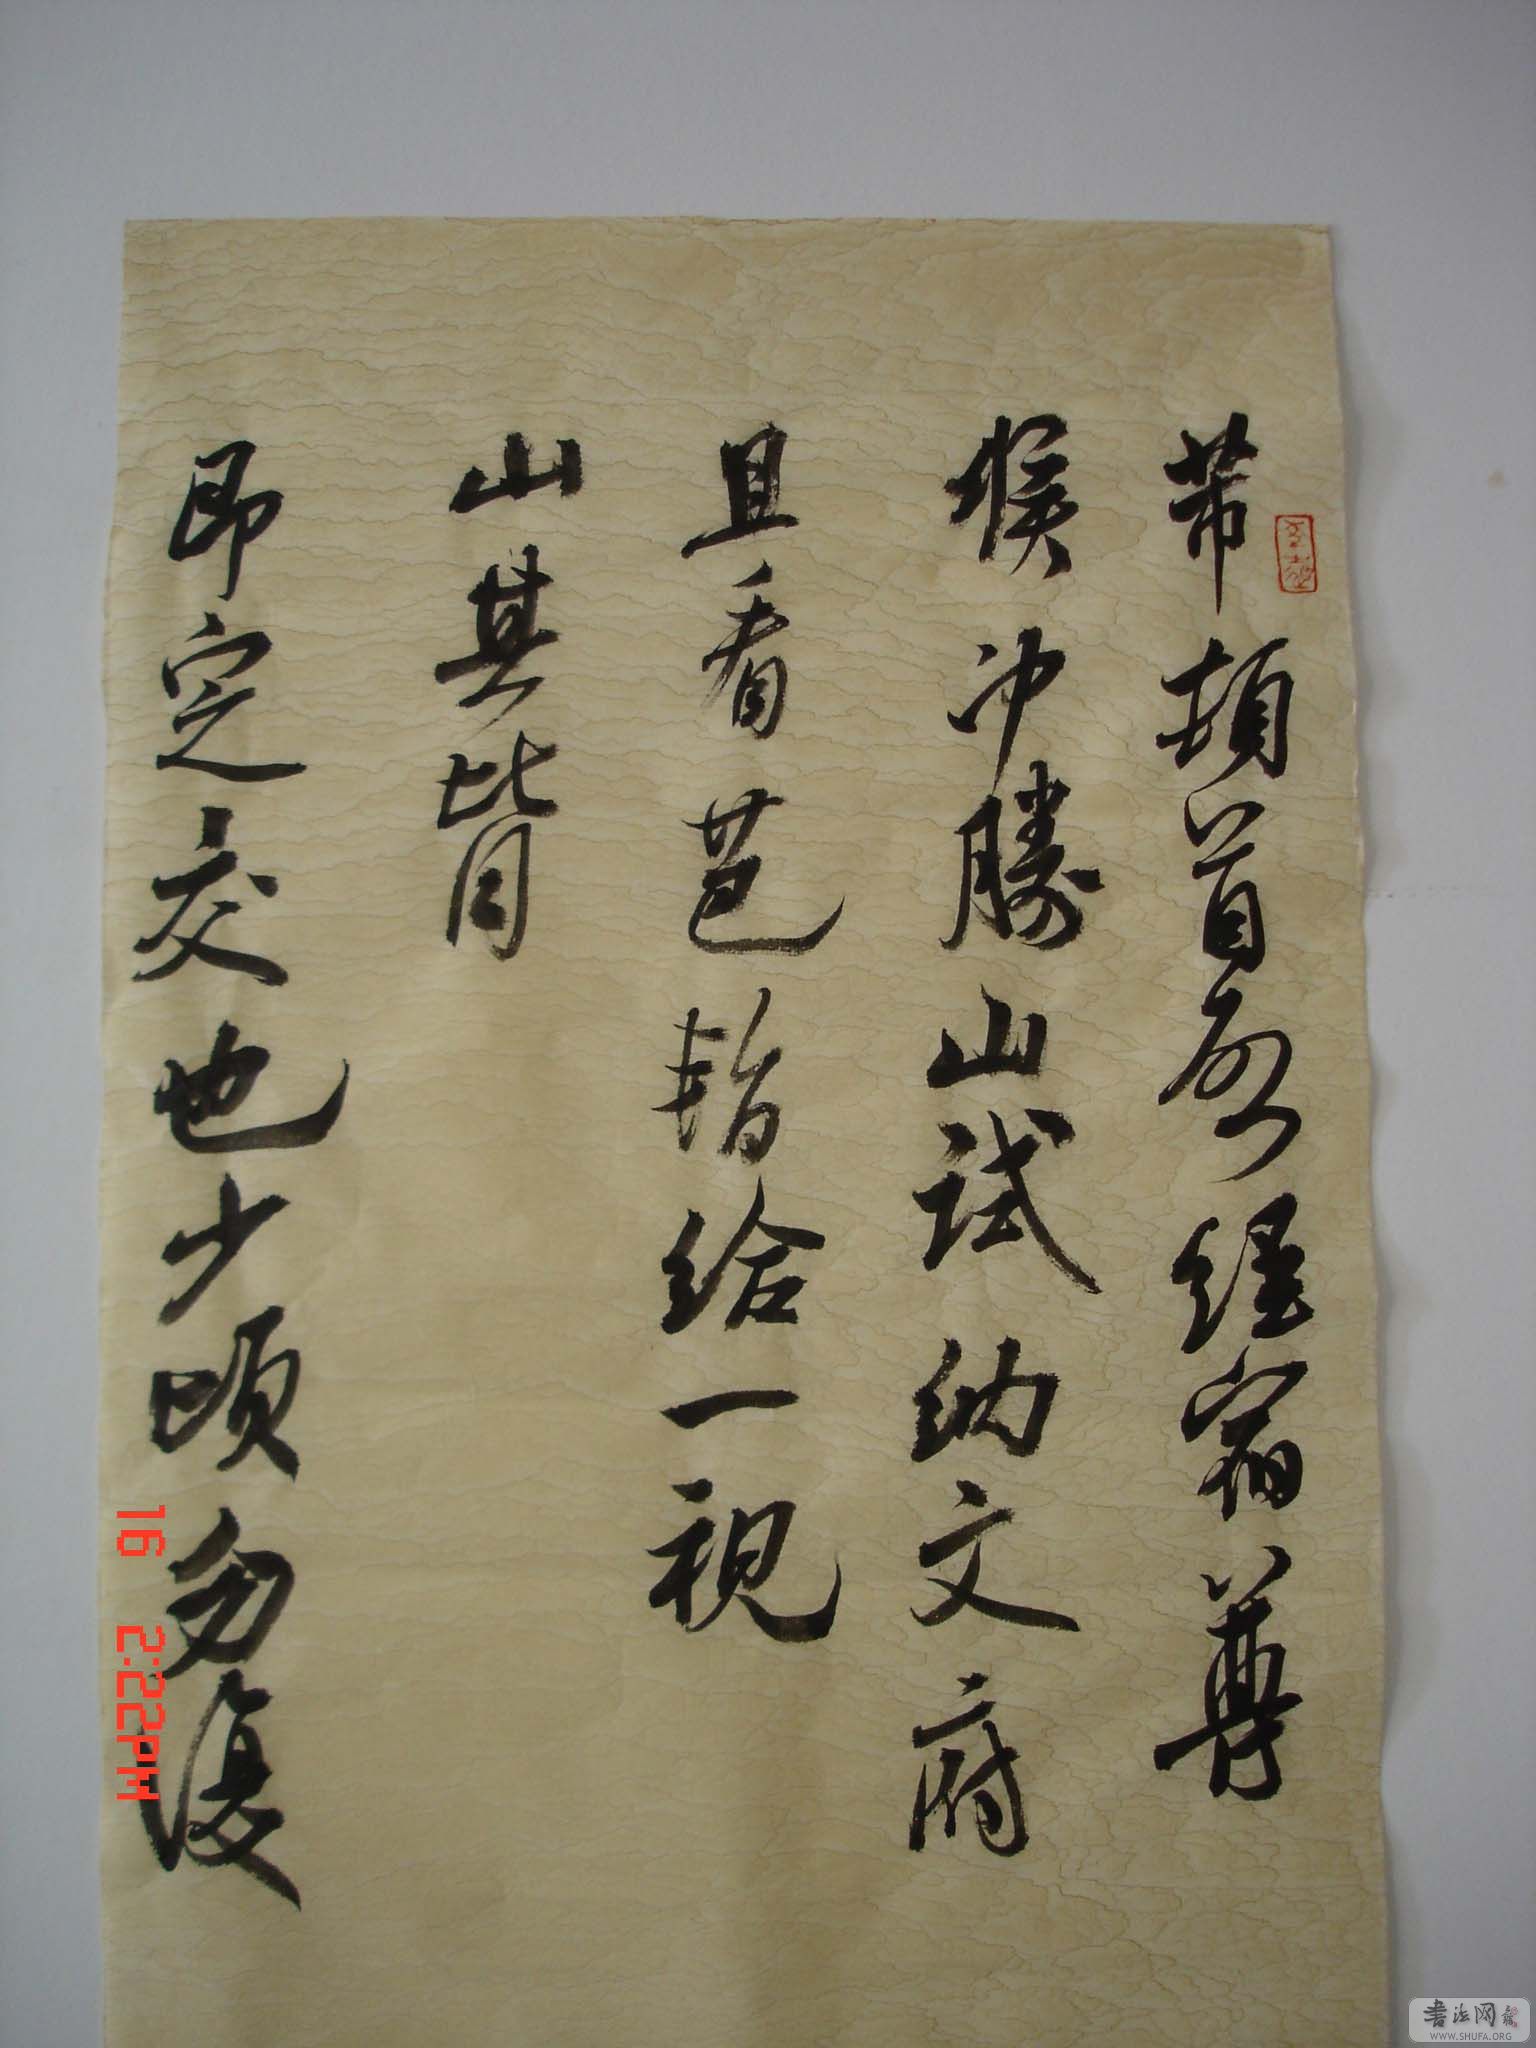 芾頓首再啓經宿尊
候冲勝山試納文府
且看芭
給一視
山其背
即定交也少頃勿復
16 2:22PM
書法网
WWW.SHUFA.ORG